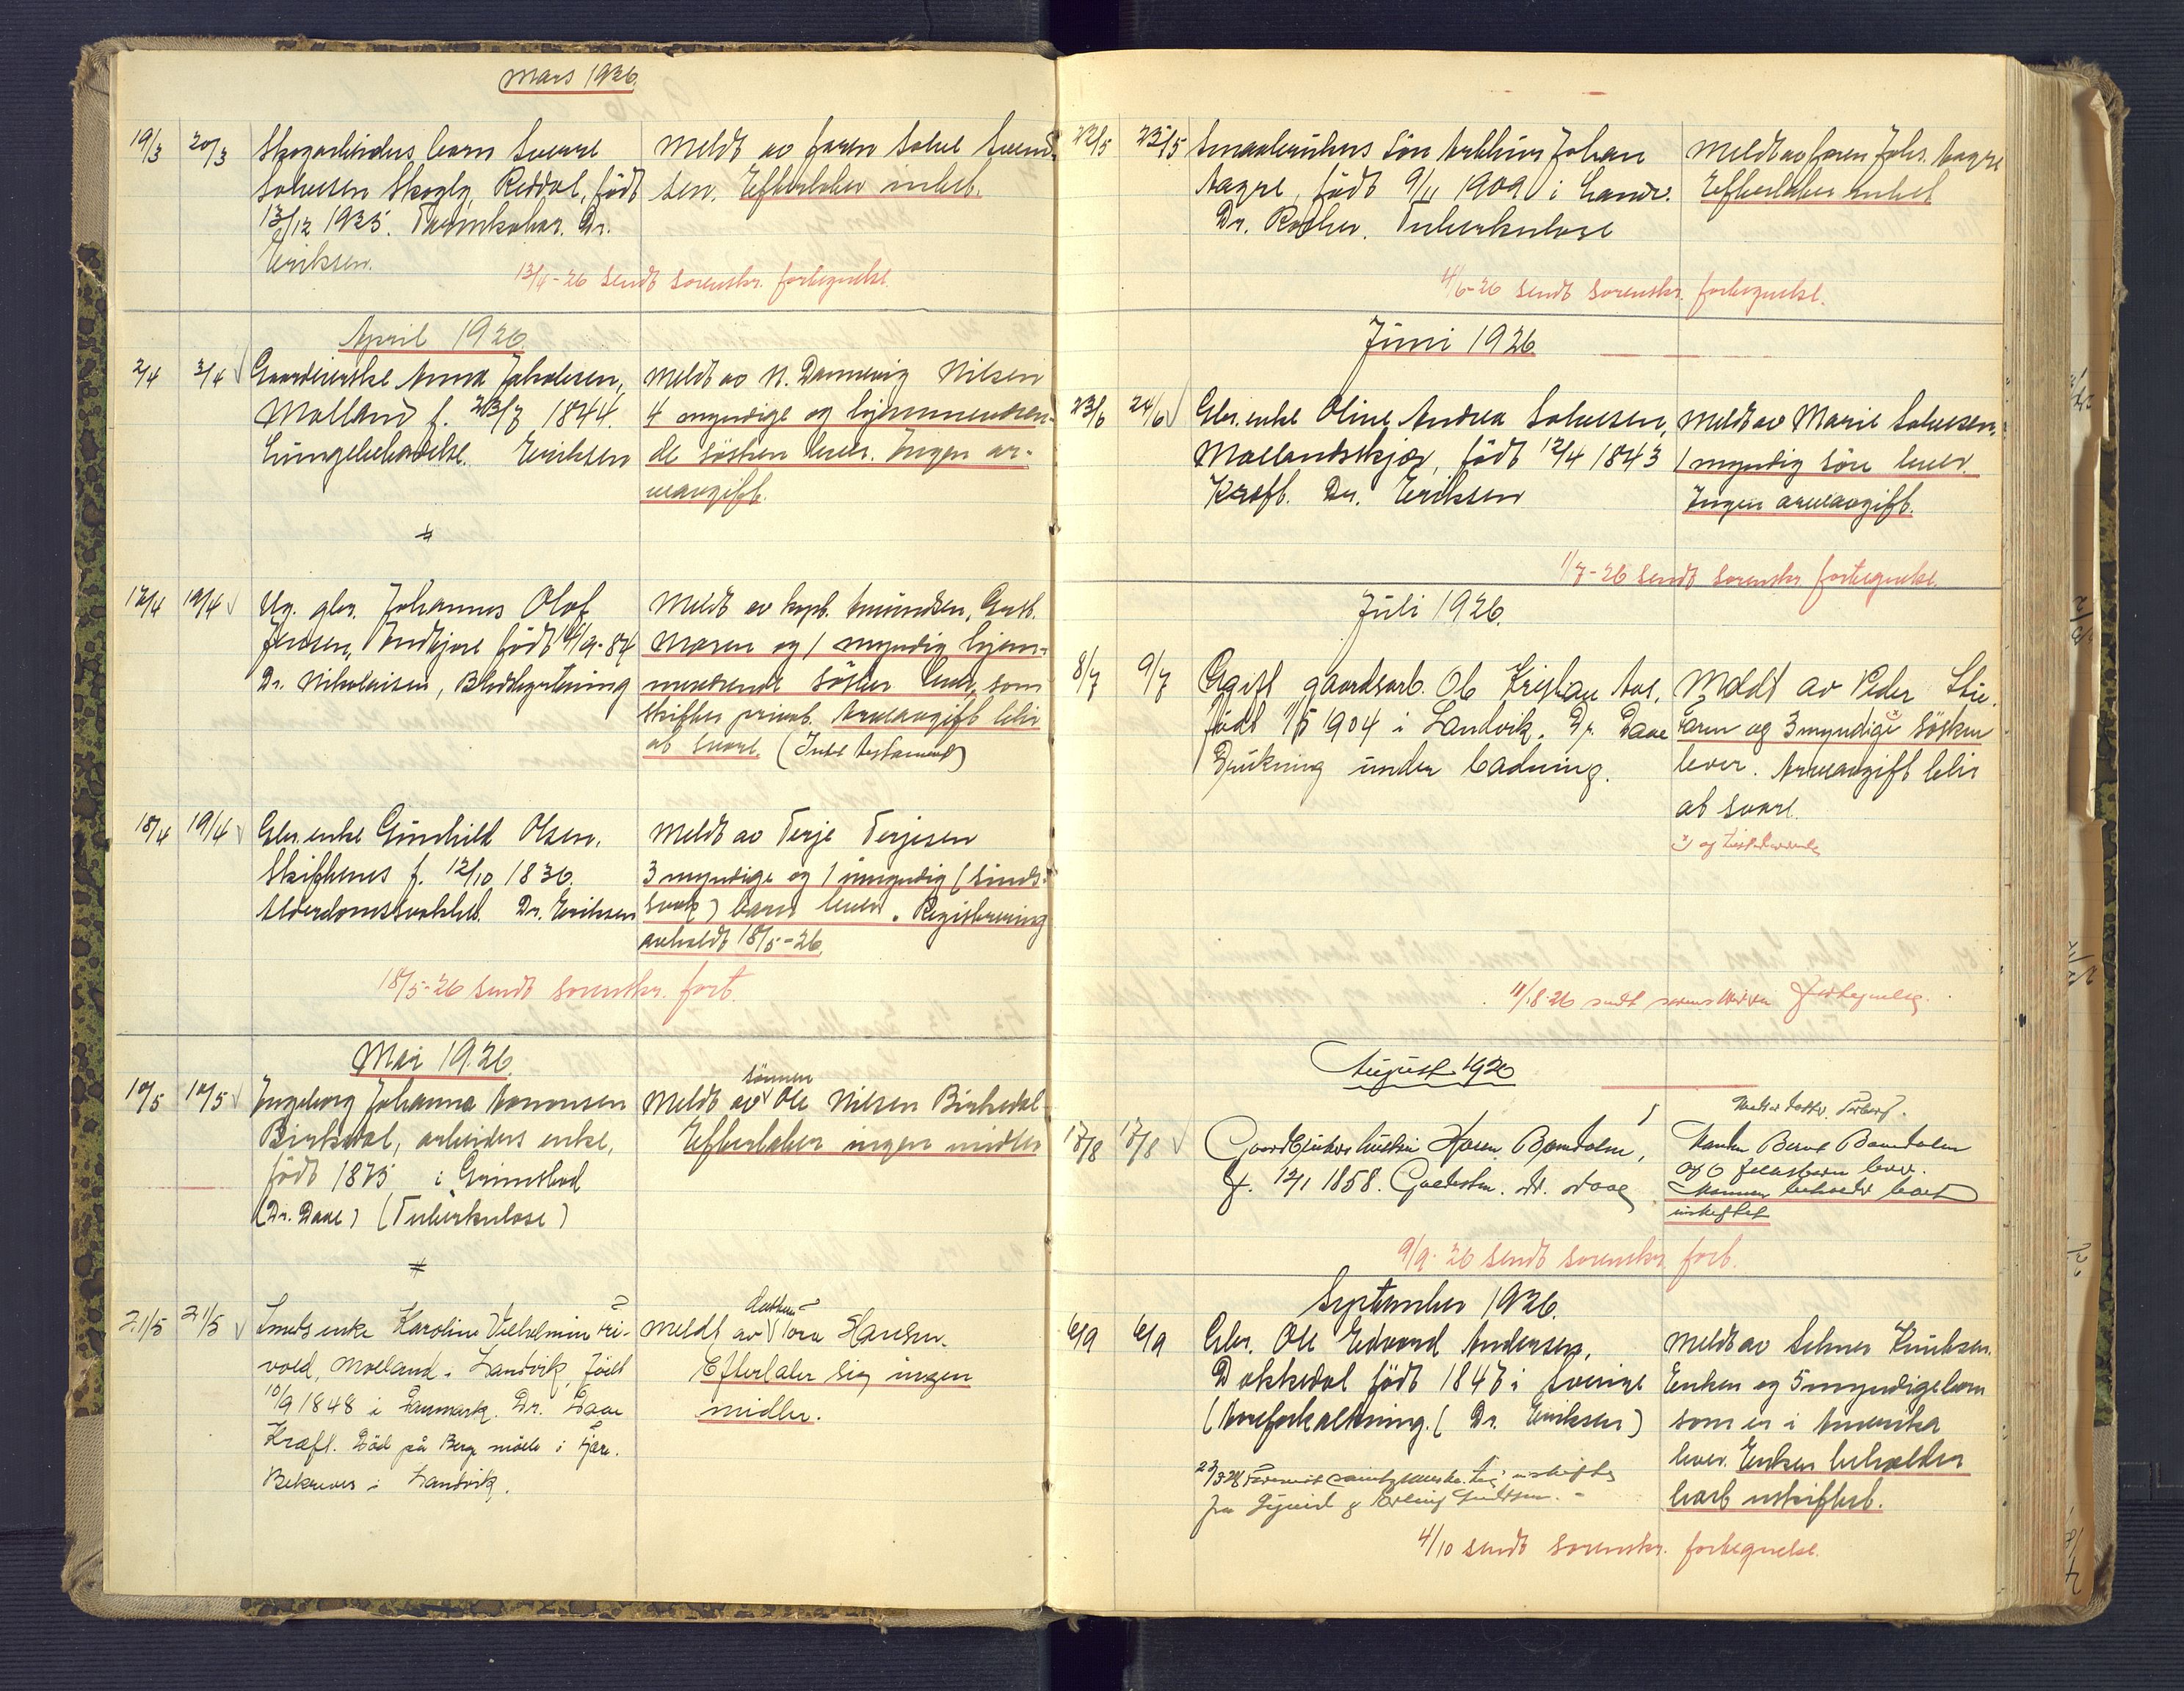 Mars 1926.
19/3 20/3 Skogarbeiders barn Sverre
Solvesen Skogly, Reddal, født
13/12 1925. Tarmkatar. Dr.
Eriksen.
Meldt av faren Solve Svend-
sen. Efterlater intet.
13/4-26 sendt sorenskr. fortegnelse.
April 1926.
2/4 3/4 Gaardeierske Anna Jakobsen,
Molland f. 23/7 1844.
Lungebetændelse. Eriksen
Meldt av N. Dannevig Nilsen
4 myndige og hjemmeværen-
de søsken lever. Ingen ar-
veavgift.
17/4 19/4 Ug. gbr. Johannes Olof
Jensen, født 4/9-84
Dr. Nikolaisen, Blodstyrtning
Meldt av kapt. Amundsen,
Moren og 1 myndig hjem-
meværende søster lever, som
skifter privat. Arveavgift blir
at svare. (Intet testament)
18/4 19/4 Gbr. enke Gunhild Olsen,
Skiftenes f. 12/10 1836.
Alderdomssvakhet. Dr. Eriksen
Meldt av Terje Terjesen
3 myndige og 1 umyndig (sinds-
svak) barn lever. Registrering
avholdt 18/5-26.
18/5-26 sendt sorenskr. fort.
Mai 1926.
10/5 10/5 Ingeborg Johanna Aanonsen
Birkedal, arbeiders enke,
født 1875 i Grimstad
(Dr. Daae) (Tuberkulose)
sønnen
Meldt av Ole Nilsen Birkedal
Efterlater ingen midler
21/5 21/5 Smeds enke Karoline Vilhelmine Fri-
vold, Molland i Landvik, født
10/9 1848 i Danmark. Dr. Daae
Kræft. Død på Berge mølle i Fjære.
Bekreves i Landvik.
datteren
Meldt av Tora Hansen.
Efterlater sig ingen
midler.
22/5 25/5 Smaabrukers søn Arthur Johan
Aagre, født 9/11 1909 i Landv.
Dr. Tuberkulose
Meldt av faren Johs. Aagre
Efterlater intet
4/6-26 sendt sorenskr. fortegnelse.
Juni 1926
23/6 24/6 Gbr. enke Oline Andrea Solvesen,
Mollandskjær, født 12/4 1843
Kræft. Dr. Eriksen
Meldt av Marie Solvesen.
1 myndig søn lever.
Ingen arveavgift.
1/7-26 sendt sorenskr fortegnelse.
Juli 1926.
8/7 9/7 Ugift gaardsarb. Ole Kristian Aas,
født 1/5 1904 i Landvik. Dr. Daae
Drukning under badning.
Meldt av Peder Stie.
Faren og 3 myndige x) søsken
lever. Arveavgift blir
at svare.
x) og tilstedeværende
11/8-26 sendt sorenskriveren fortegnelse.
August 1926
17/8 17/8 Gaardbrukers hustru Maren Bamdalen,
f. 12/1 1858. Dr. Daae
Manden Bernt Bamdalen
og 6 fællesbarn lever.
Mannen beholder boet
uskiftet
9/9-26 sendt sorenskr. fort.
September 1926.
6/9 6/9 Gbr. Ole Edvard Andersen,
Dokkedal født 1847 i Sverige
(Aareforkalkning. (Dr. Eriksen)
Meldt av Selmer Knudsen.
Enken og 5 myndige barn
som er i Amerika
lever. Enken beholder
boet uskiftet.
4/10 sendt sorenskr. fortegnelse.